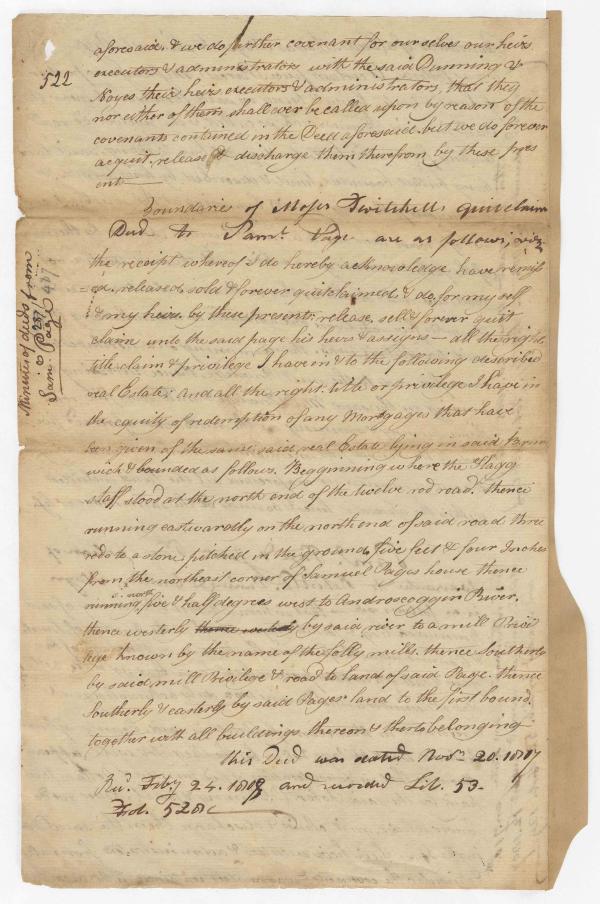 522
aforesaid. & we do further covenant for ourselves our heirs
executors & administrators with the said Dunning &
Noyes their heirs executors & administrators, that they
nor either of them shall ever be called upon by reason of the
covenants contained in the Deed aforesaid. but we do forever
acquit. release & discharge them therefrom by these pres
ent
Boundaries of Moses Twitchell's quitclaim
Deed to Saml. Page are as follows, viz
the receipt whereof I do hereby acknowledge have remiss
=ed. released, sold & forever quitclaimed. & do, for myself
& my heirs. by these presents, release, sell & forever quit
claim unto the said page his heirs & assigns — all the right,
title, claim & privilege I have in & to the following described
real Estate; And all the right. title or privilege I have in
the equity of redemption of any Mortgages that have
been given of the same, said real Estate lying in said
wick & bounded as follows. Begginning where the Flagg
staff stood at the north end of the twelve rod road. thence
running eastwardly on the north end of said road three
rods to a stone pitched in the ground, five feet & four Inches
from the northeast corner of Samuel Pages house thence
running north five & half degrees west to Androscoggin River.
thence westerly by said river to a mill Privi
lege known by the name of the folly mills. thence Southerly
by said mill Privilege & road to land of said Page. thence
Southerly & easterly by said Pages land to the first bound.
together with all buildings thereon & thereto belonging
this Deed was dated Novr. 20. 1817
Recd. Feby 24. 1818 and recorded Lib. 53.
Fol. 528
Minute of deeds from
Sam. Page